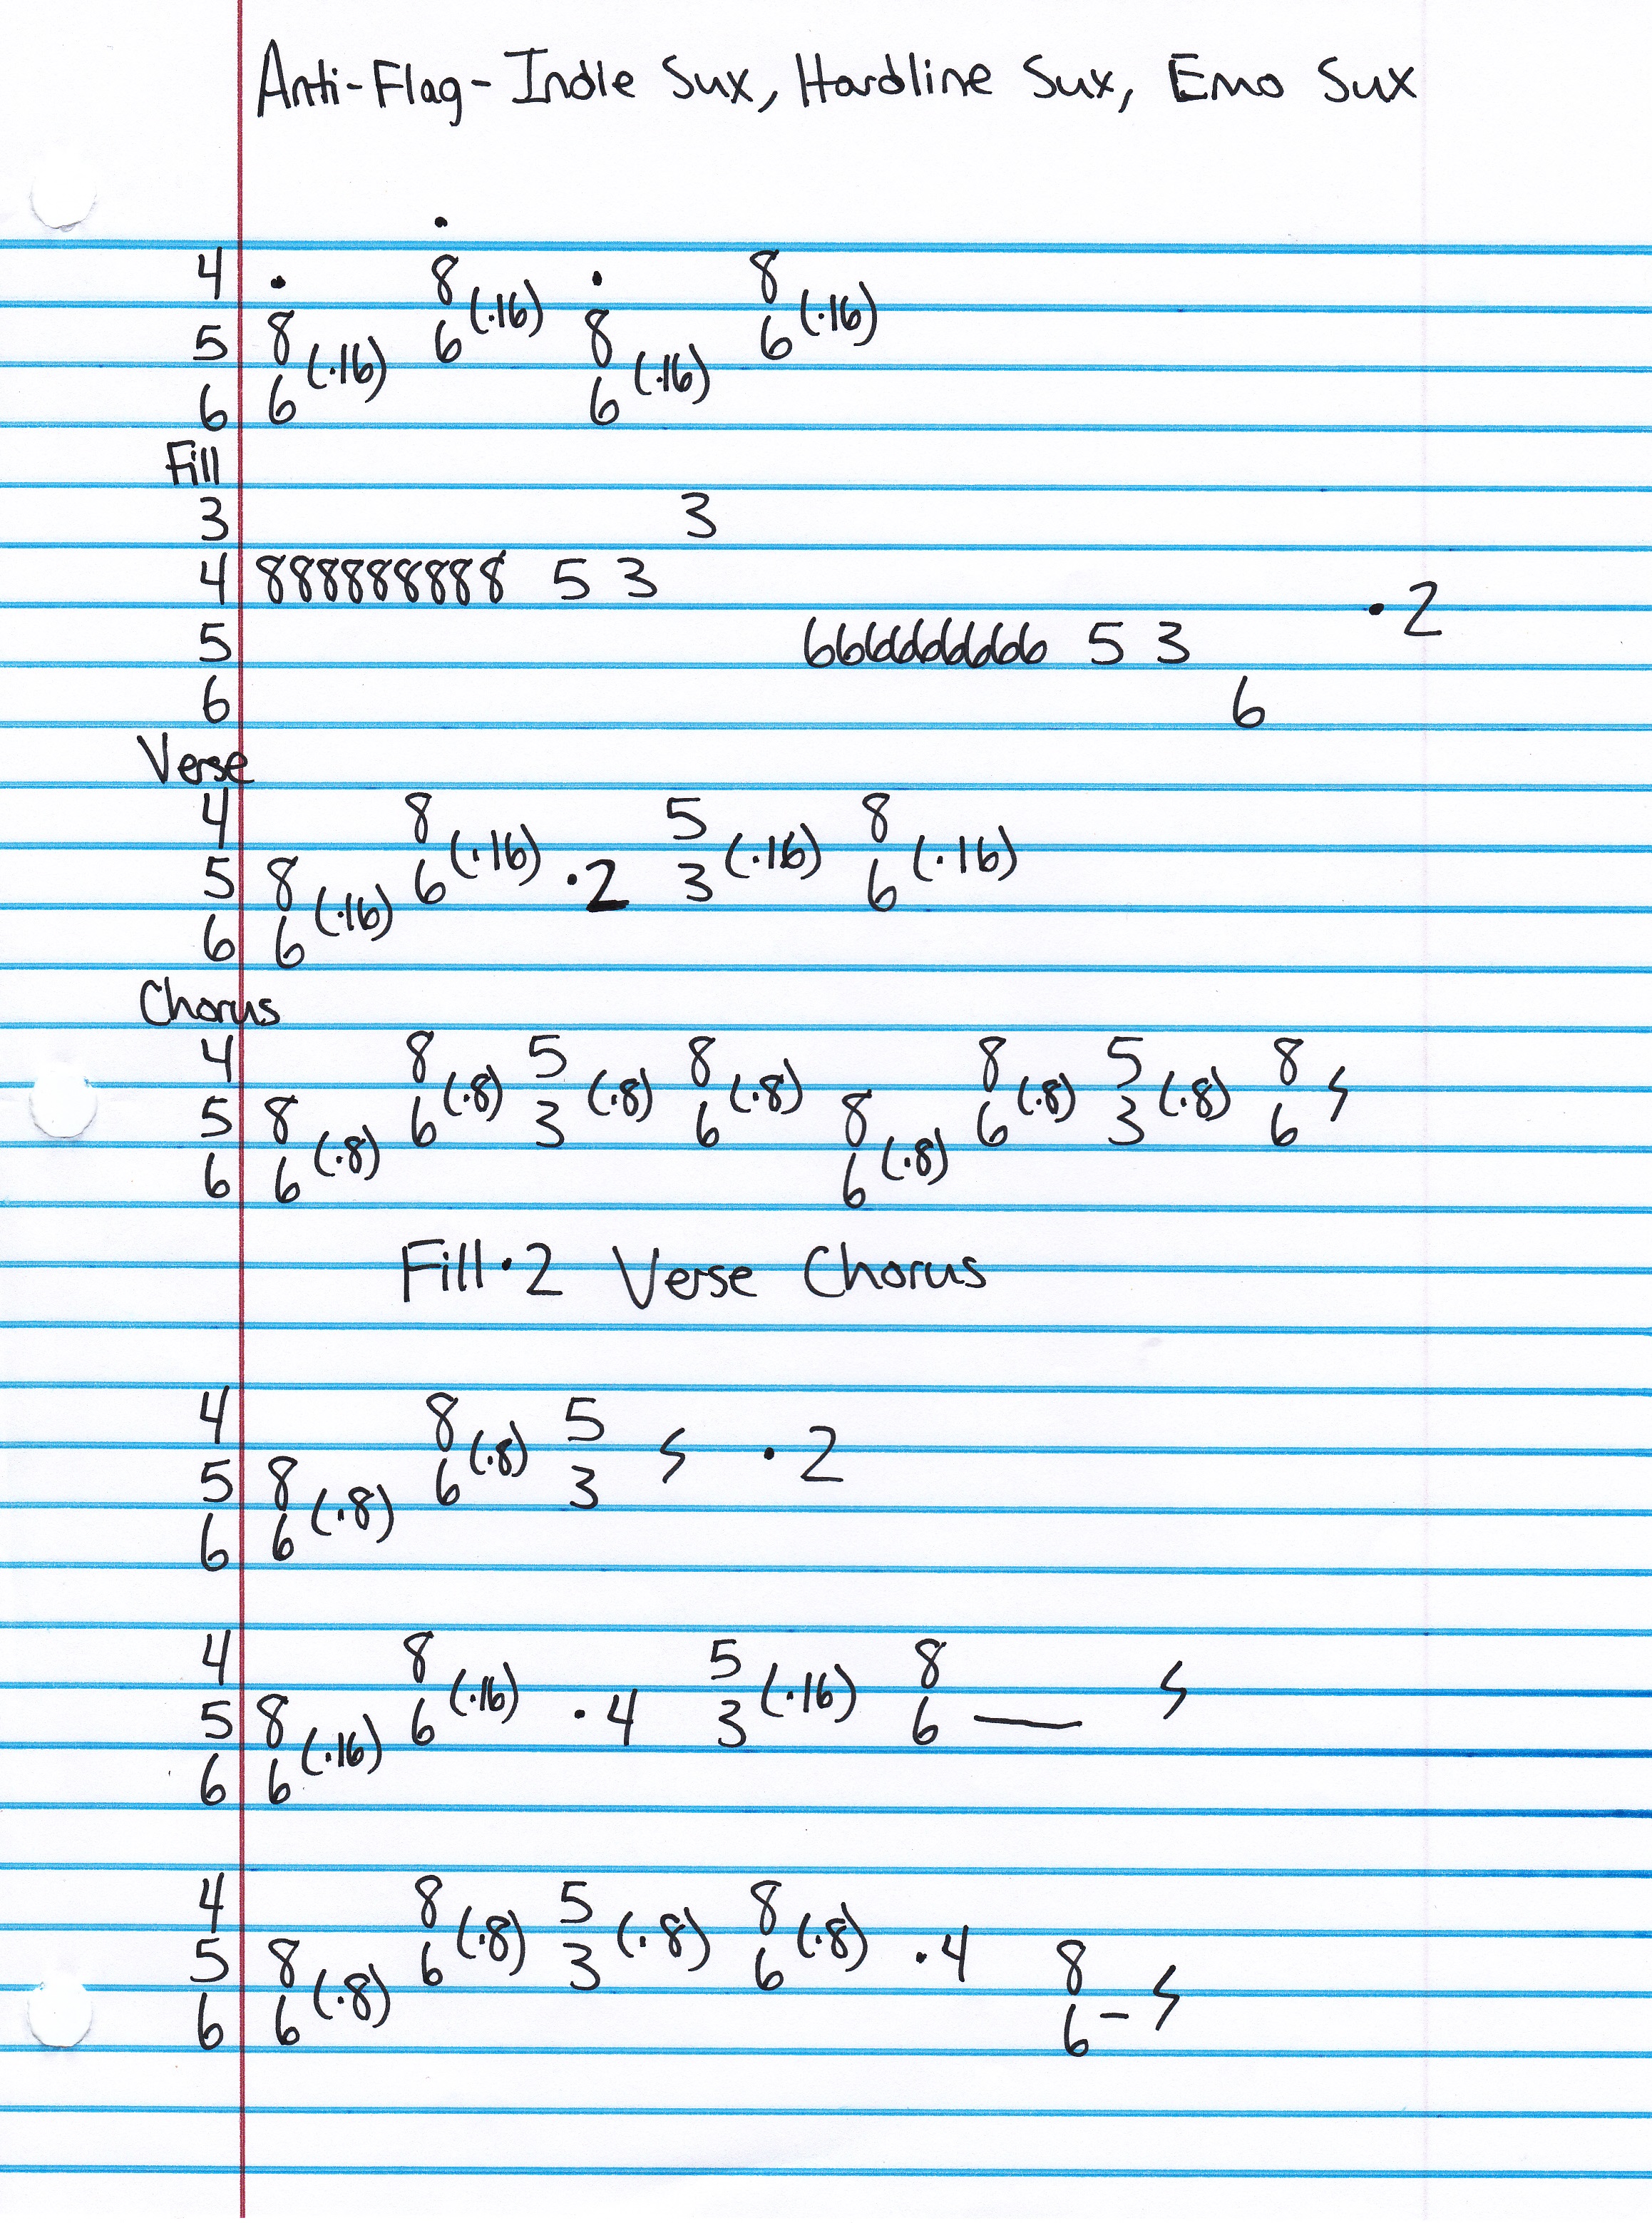 Anti-Flag - Indie Sux, Hardline Sux, Emo Sux
4 . 8 . 8
5 8 (.16) 6 (.16) 8 6 (.16)
6 6 6 (.16)
Fill
3 3
4 888888888 5 3
5 666666666 5 3 .2
6 6
Verse
4 8 5 8
5 8 6 (.16) .2 3 (.16) 6 (.16)
6 6 (.16)
Chorus
4 8 5 8 8 5 8
5 8 6 (.8) 3 (.8) 6 (.8) 8 6 (.8) 3 (.8) 6
6 6 (.8) 6 (.8)
Fill .2 Verse Chorus
4 8 5
5 8 6 (.8) 3 .2
6 6 (.8)
4 8 5 8
5 8 6 (.16) .4 3 (.16) 6 —
6 6 (.16)
4 8 5 8
5 8 6 (.8) 3 (.8) 6 (.8) .4 8
6 6 (.8) 6 –